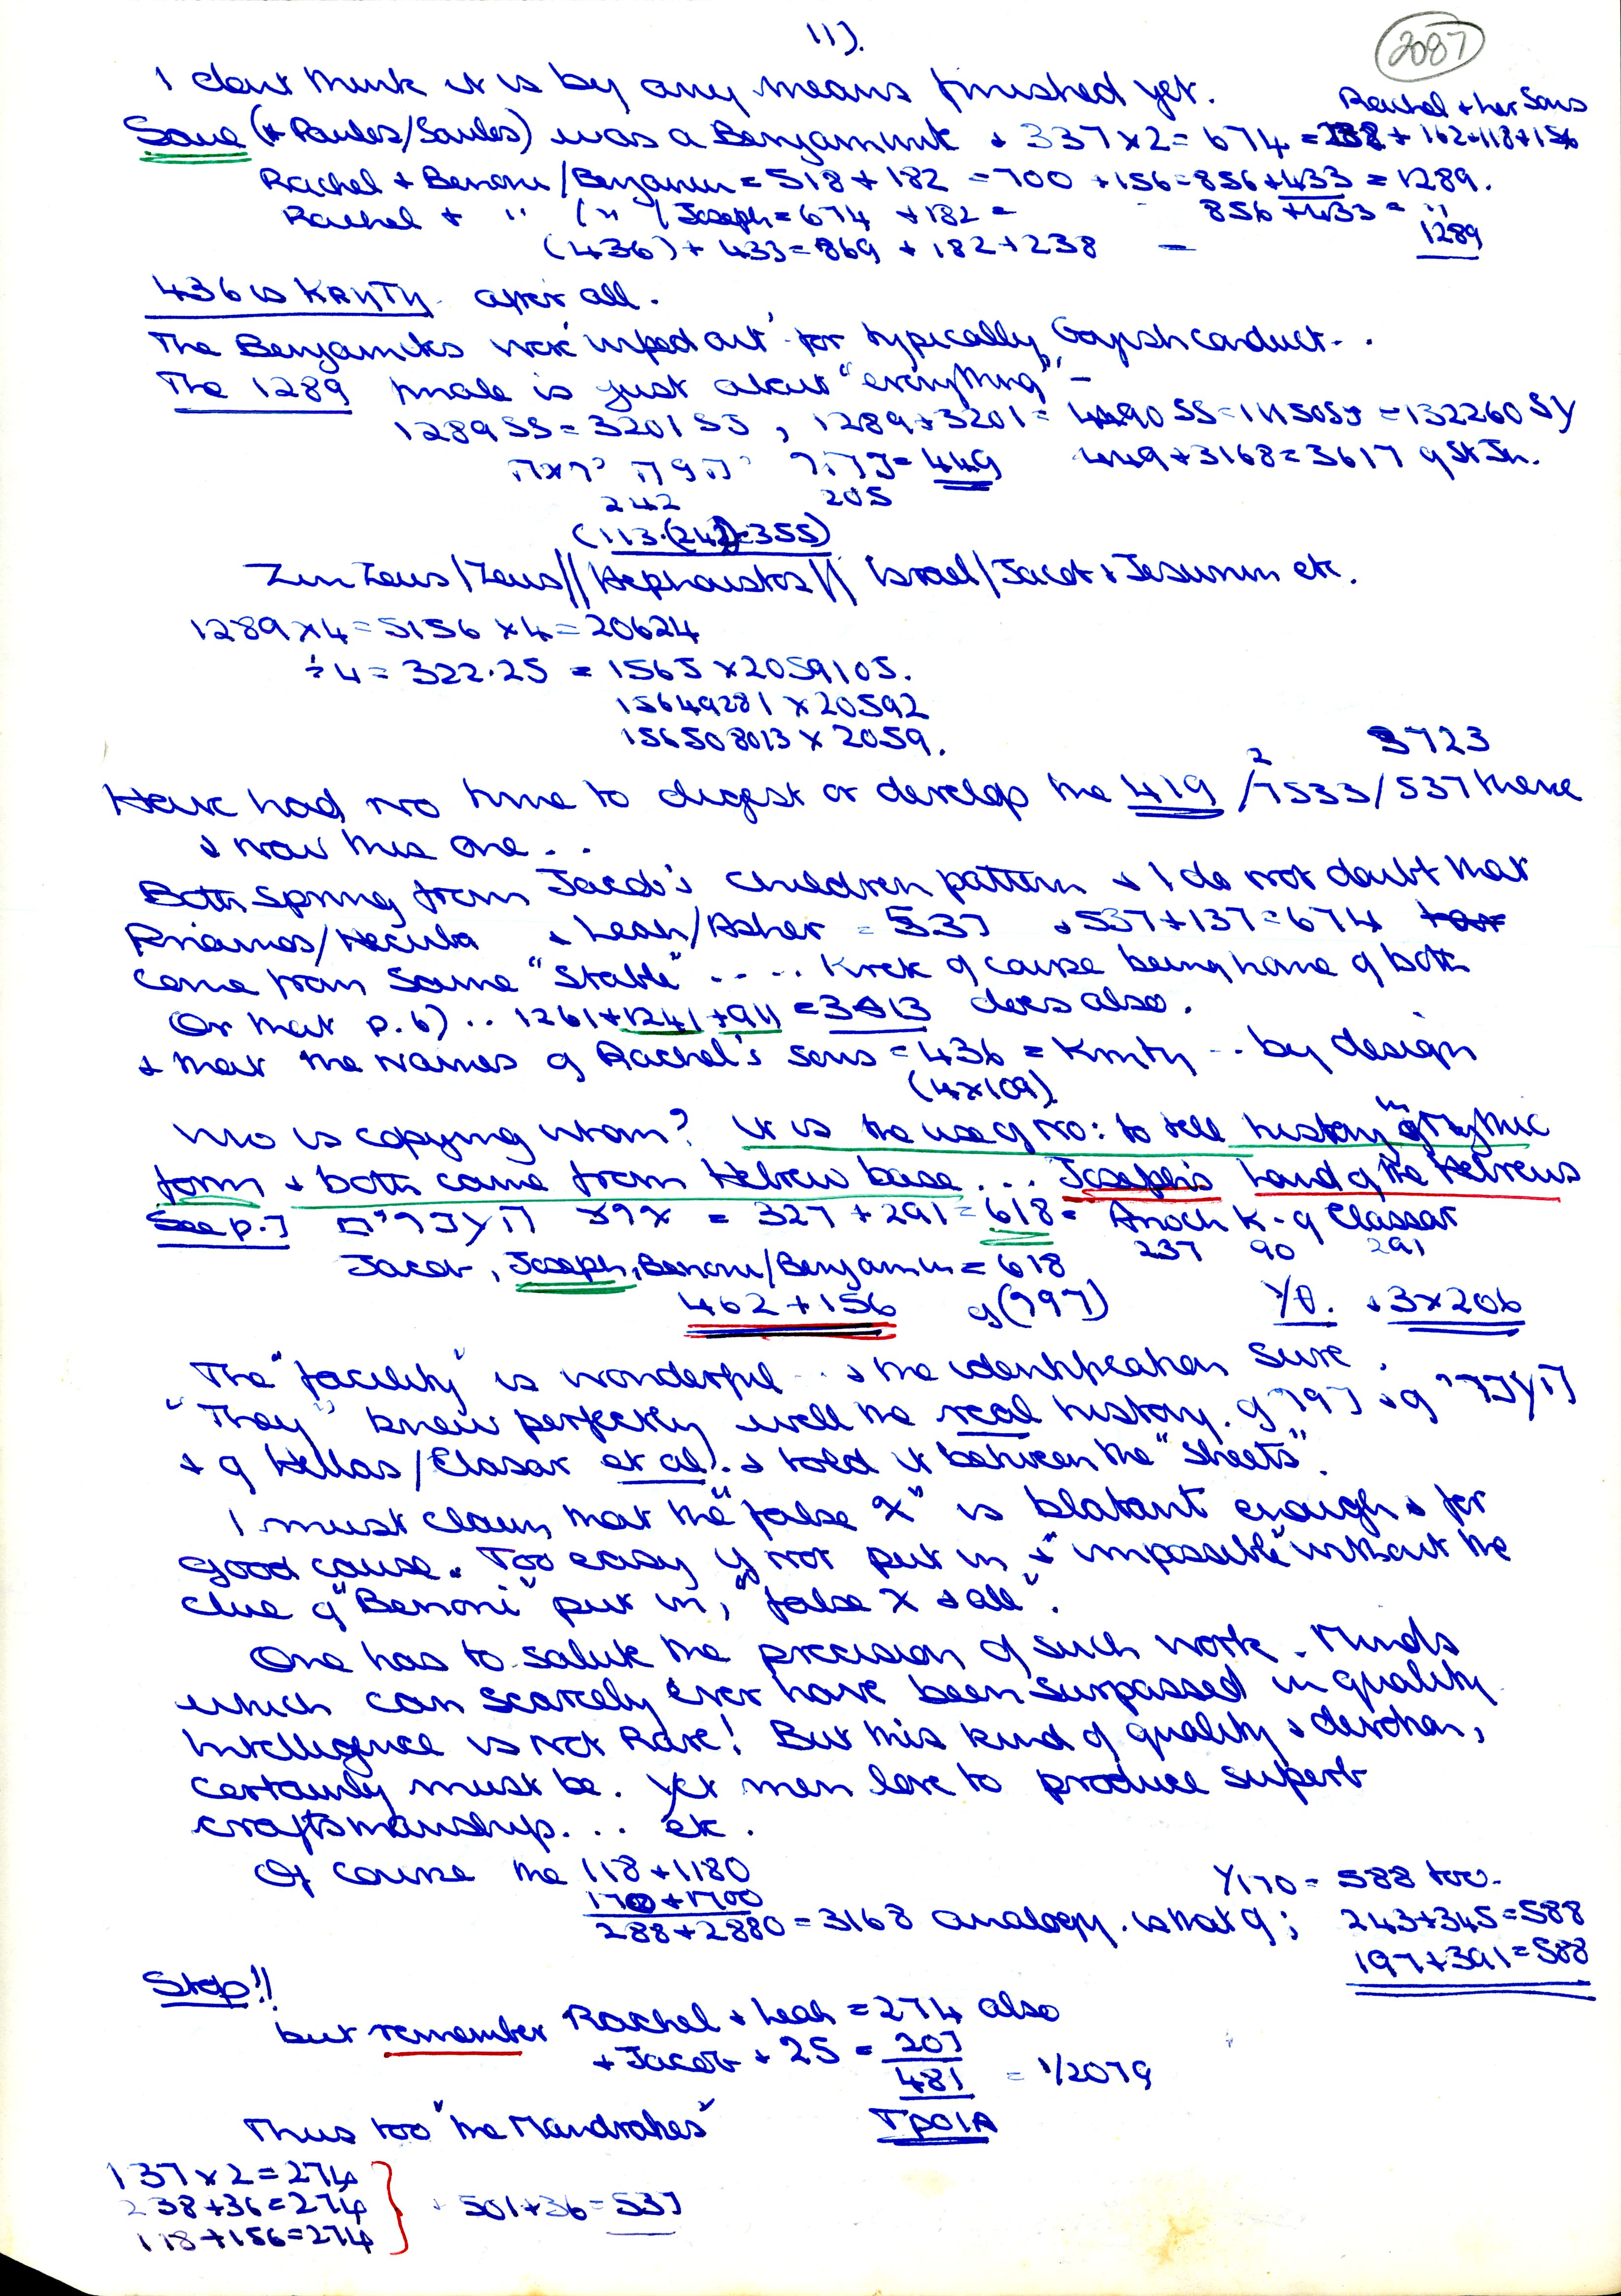 11).
2087
I dont think it is by any means finished yet.
Rachel + her Sons
Saul (+ Paulos/Saulos) was a Benjamite + 337 x 2 = 674 = 238 + 162+118+156
Rachel + Benoni/Benjamin = 518 + 182 = 700 + 156 = 856 + 433 = 1289.
Rachel + " ( " / Joseph = 674 + 182 = 856 + 433 = "
1289
(436) + 433 = 869 + 182 + 238 =
436 is KRηTη after all.
The Benjamites were 'wiped out' for typically conduct..
The 1289 finale is just about "everything" -
1289 SS = 3201 SS, 1289 + 3201 = 4490 SS = = 132260 SY
= 449 449 + 3168 = 3617 of St Jn.
242 205
(113.(242) = 355)
Zun Zeus/Zeus//Hephaistos// Israel/Jacob + Jesurun etc.
1289 x 4 = 5156 x 4 = 20624
÷ 4 = 322.25 = 1565 x 2059105.
15649281 x 20592
156508013 x 2059.
3723
Have had no time to digest or develop the 419 /7533/537 theme
+ now this one ..
Both spring from Jacob's children pattern + I do not doubt that
Priamos/Hecuba + Leah/Asher = 537 + 537 + 137 = 674
come from same "Stable" .... Krete of course being home of both
Or that p. 6) .. 1261 + 1241 + 911 = 3413 does also.
+ that the names of Rachel's sons = 436 = Krηtη .. by design
(4 x 109)
Who is copying whom? It is the use of No: to tell history in Mythic
form + both come from Hebrew base ... Joseph's Land of the Hebrews
See p.7 = 327 + 291 = 618 = Arioch K. of Elassar
237 90 291
Jacob, Joseph, Benoni/Benjamin = 618
462 + 156 + 3 x 206
The "facility" is wonderful .. + the identification sure.
"They" knew perfectly well the real history. of + of
+ of Hellas/Elasar et al. + told it between the "sheets".
I must claim that the "false x" is blatant enough + for
good cause. Too easy if not put in + "impossible" without the
clue of "Benoni" put in, "false x + all".
One has to salute the precision of such work. Minds
which can scarcely ever have been surpassed in quality
Intelligence is not Rare! But this kind of quality + devotion,
certainly must be. Yet men love to produce superb
craftsmanship... etc.
Of course the 118 + 1180
170 + 1700
288 + 2880 = 3168 analogy. is that of;
Y170 = 588 too.
243 + 345 = 588
197 + 391 = 588
Stop!!
but remember Rachel + Leah = 274 also
+ Jacob + 25 = 207
481 = 1/2079
TPOIA
Thus too "the Mandrakes"
137 x 2 = 274
238 + 36 = 274 + 501 + 36 = 537
118 + 156 = 274